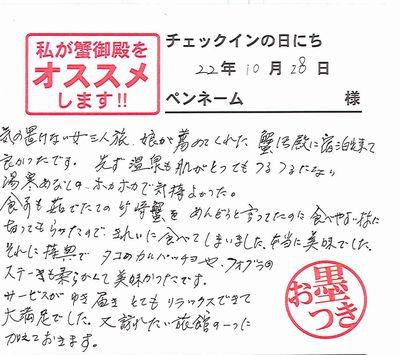 私が蟹御殿を
オススメ
します!!
チェックインの日にち
22年10月28日
ペンネーム 様
気の置けない女三人旅、娘が薦めてくれた蟹御殿に宿泊出来て
良かったです。先ず温泉も肌がとってもつるつるになり
湯寒めなしの、ホカホカで気持よかった。
食事も茹でたての竹崎蟹をめんどうと言ってたのに食べやすい様に
切ってもらったので、きれいに食べてしまいました。本当に美味でした。
それに特典でタコのカルパッチョや、フォグラの
ステーキも柔らかくて美味かったです。
サービスがゆき届きとてもリラックスできて
大満足でした。又訪れたい旅館の一つに
加えておきます。
お墨つき